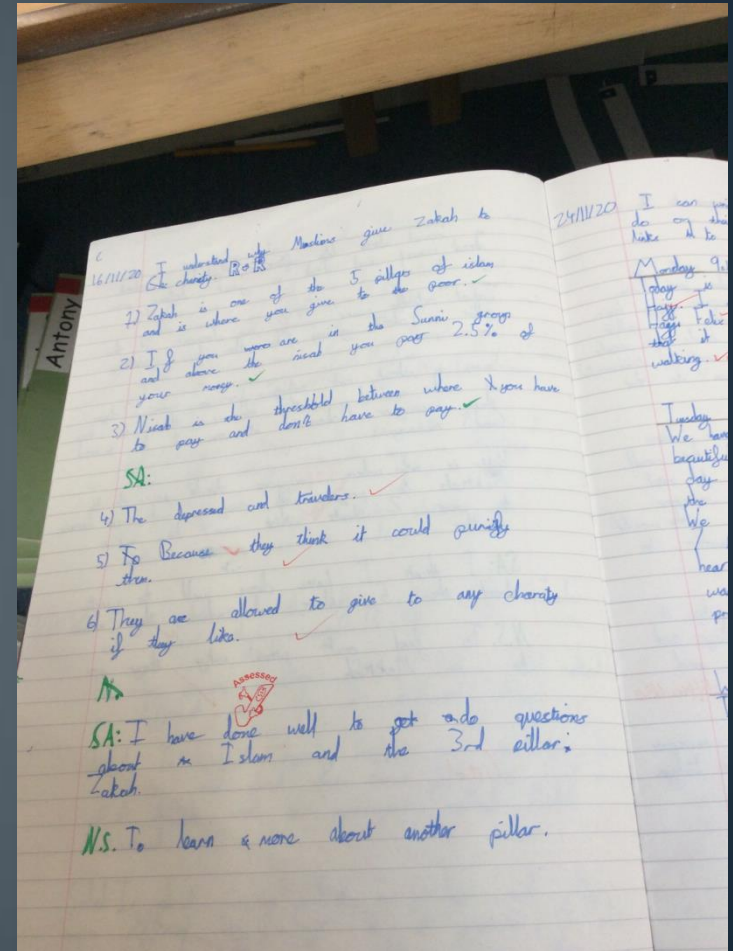 Antony
16/11/20 I understand why Muslims give Zakah to
charity. R.o.R
1) Zakah is one of the 5 pillars of islam
and is where you give to the poor.
2) If you are in the Sunni group
and above the nisab you pay 2.5% of
your money.
3) Nisab is the threshold between where you have
to pay and don't have to pay.
SA:
4) The depressed and travelers.
5) Because they think it could purify
them.
6) They are allowed to give to any charaty
if they like.
Assessed
SA: I have done well to do questions
about Islam and the 3rd pillar:
Zakah.
N.S. To learn more about another pillar.
24/11/20 I can
do on
links it to
Monday 9.
Today is
that it
walking.
Tuesday
We have
beautiful
day
the
We
hear